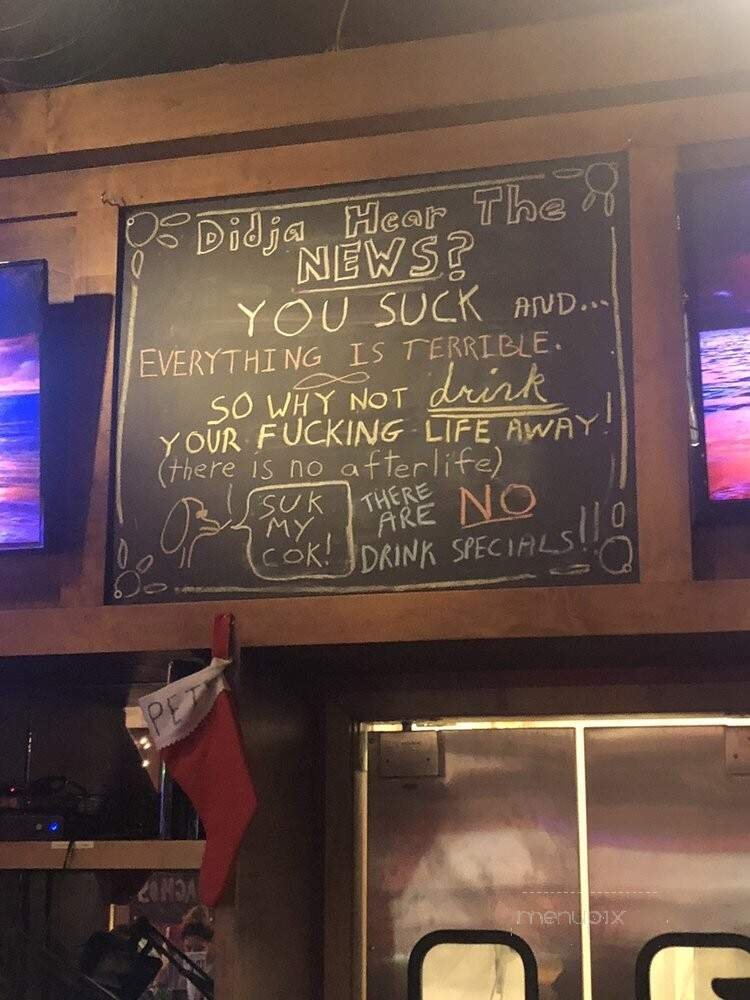 Didja Hear The
NEWS?
YOU SUCK AND...
EVERYTHING IS TERRIBLE.
SO WHY NOT drink
YOUR FUCKING LIFE AWAY!
(there is no afterlife)
SUK
MY
COK!
THERE
ARE NO
DRINK SPECIALS!!
PET
menupix